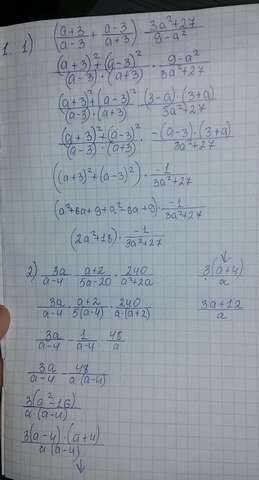 1. 1) ((a+3)/(a-3) + (a-3)/(a+3)) : (3a²+27)/(9-a²)
((a+3)²+(a-3)²)/((a-3)·(a+3)) · (9-a²)/(3a²+27)
((a+3)²+(a-3)²)/((a-3)·(a+3)) · ((3-a)·(3+a))/(3a²+27)
((a+3)²+(a-3)²)/((a-3)·(a+3)) · (-(a-3)·(3+a))/(3a²+27)
((a+3)²+(a-3)²) · (-1)/(3a²+27)
(a²+6a+9+a²-6a+9) · (-1)/(3a²+27)
(2a²+18) · (-1)/(3a²+27)
2) 3a/(a-4) - (a+2)/(5a-20) · 240/(a²+2a)
3a/(a-4) - (a+2)/(5(a-4)) · 240/(a·(a+2))
3a/(a-4) - 1/(a-4) · 48/a
3a/(a-4) - 48/(a·(a-4))
3(a²-16)/(a·(a-4))
3(a-4)·(a+4)/(a·(a-4))
↓
↓
3(a+4)/a
(3a+12)/a